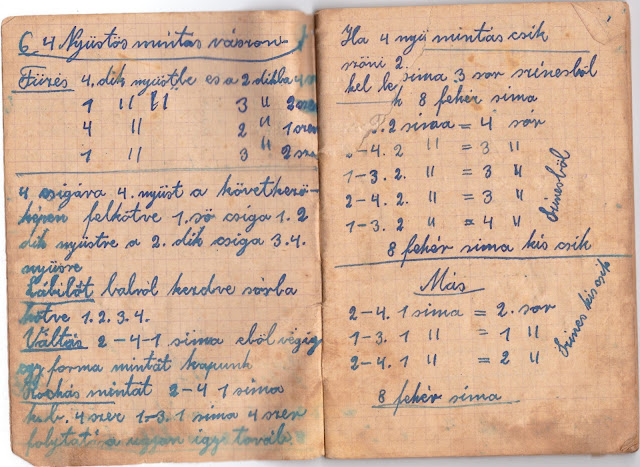 6 4 Nyüstös mintás vászon
Fűzés 4. dik nyüstbe es a 2 dikba
1 " " 3 " 2 szer
4 " 2 " 1 szer
1 " 3 " 2 sze
4 csigára 4. nyüst a következő-
képen felkötve 1. ső csiga 1. 2
dik nyüstre a 2. dik csiga 3. 4.
nyüsre
Lábilőt balról kezdve sorba
kötve 1. 2. 3. 4.
Váltás 2-4-1 sima eből végig
egy forma mintát kapunk
Kockás mintát 2-4 1 sima
k.b. 4 szer 1-3. 1 sima 4 szer
folytatása ugyan így továb.
Ha 4 nyü mintás csik
színi 2.
kel le sima 3 sor színesből
8 fehér sima
2 simaa = 4 sor
-4. 2 " = 3 "
1-3. 2 " = 3 "
2-4. 2 " = 3 "
1-3. 2 " = 4 "
Színesből
8 fehér sima kis csik
Más
2-4. 1 sima = 2. sor
1-3. 1 " = 1 "
2-4. 1 " = 2 "
Színes kis csik
8 fehér sima